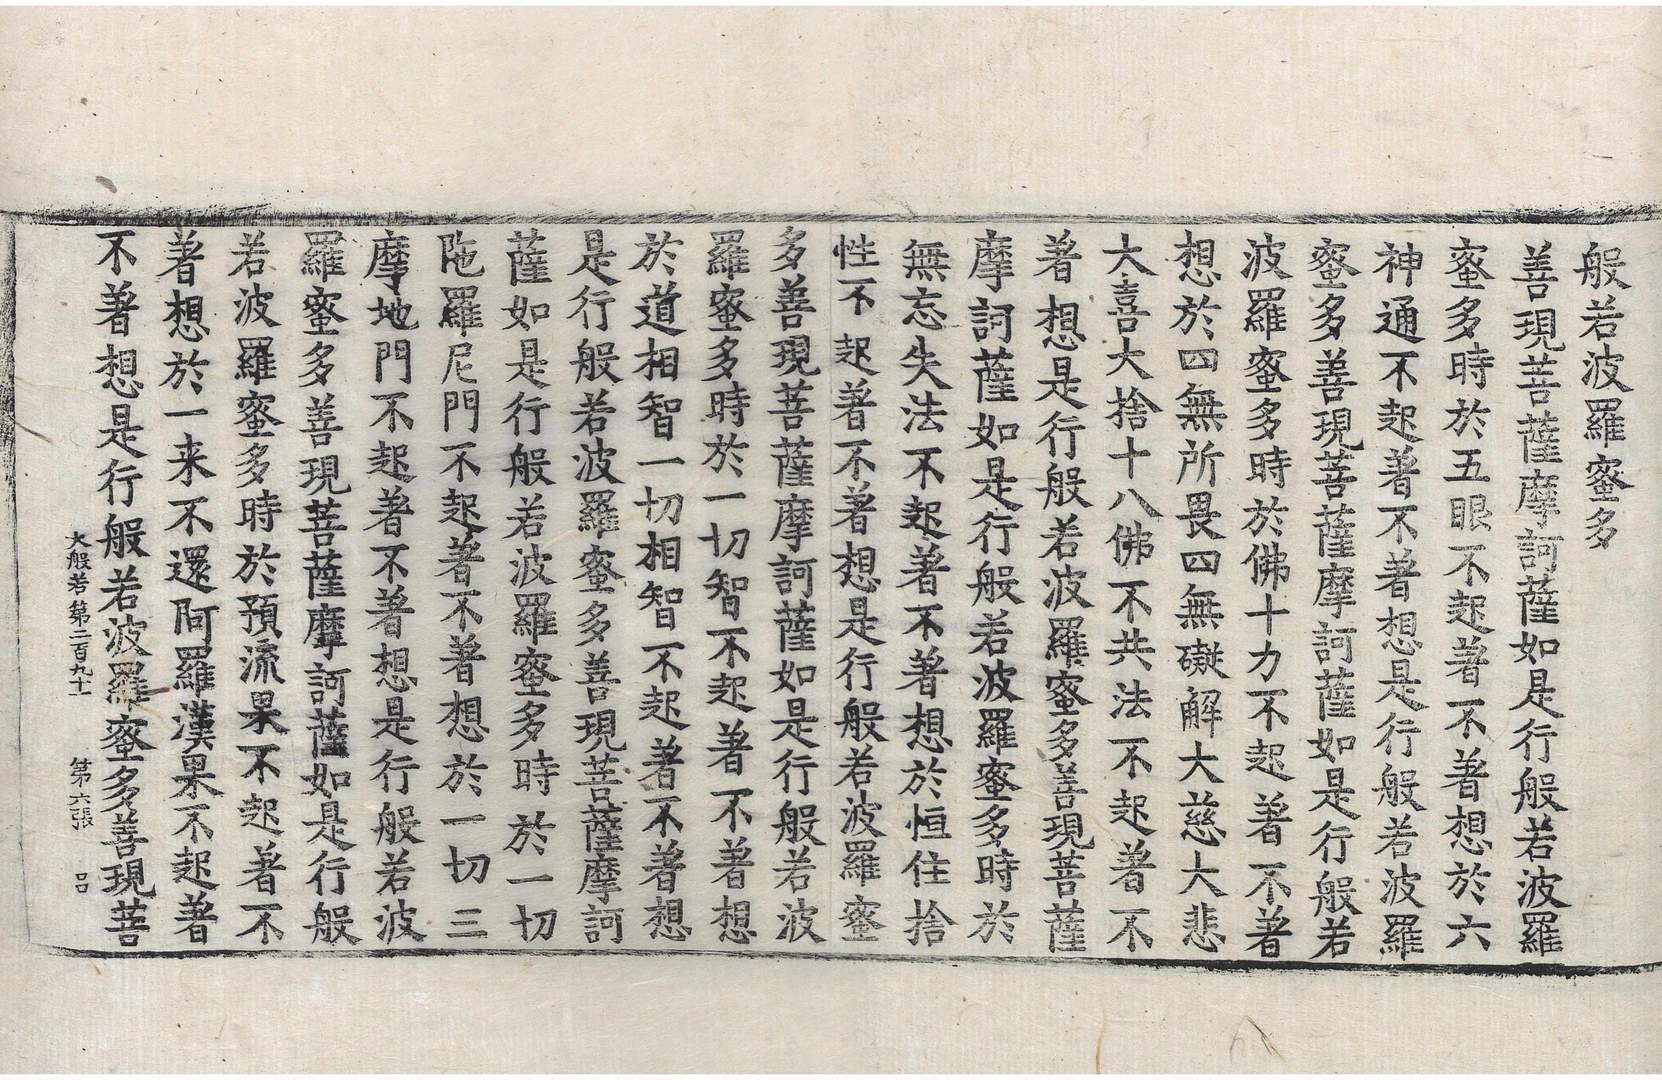 般若波羅蜜多
善現菩薩摩訶薩如是行般若波羅
蜜多時於五眼不起著不著想於六
神通不起著不著想是行般若波羅
蜜多善現菩薩摩訶薩如是行般若
波羅蜜多時於佛十力不起著不著
想於四無所畏四無礙解大慈大悲
大喜大捨十八佛不共法不起著不
著想是行般若波羅蜜多善現菩薩
摩訶薩如是行般若波羅蜜多時於
無忘失法不起著不著想於恒住捨
性不起著不著想是行般若波羅蜜
多善現菩薩摩訶薩如是行般若波
羅蜜多時於一切智不起著不著想
於道相智一切相智不起著不著想
是行般若波羅蜜多善現菩薩摩訶
薩如是行般若波羅蜜多時於一切
陁羅尼門不起著不著想於一切三
摩地門不起著不著想是行般若波
羅蜜多善現菩薩摩訶薩如是行般
若波羅蜜多時於預流果不起著不
著想於一来不還阿羅漢果不起著
不著想是行般若波羅蜜多善現菩
大般若第二百九十一 第六張 吕